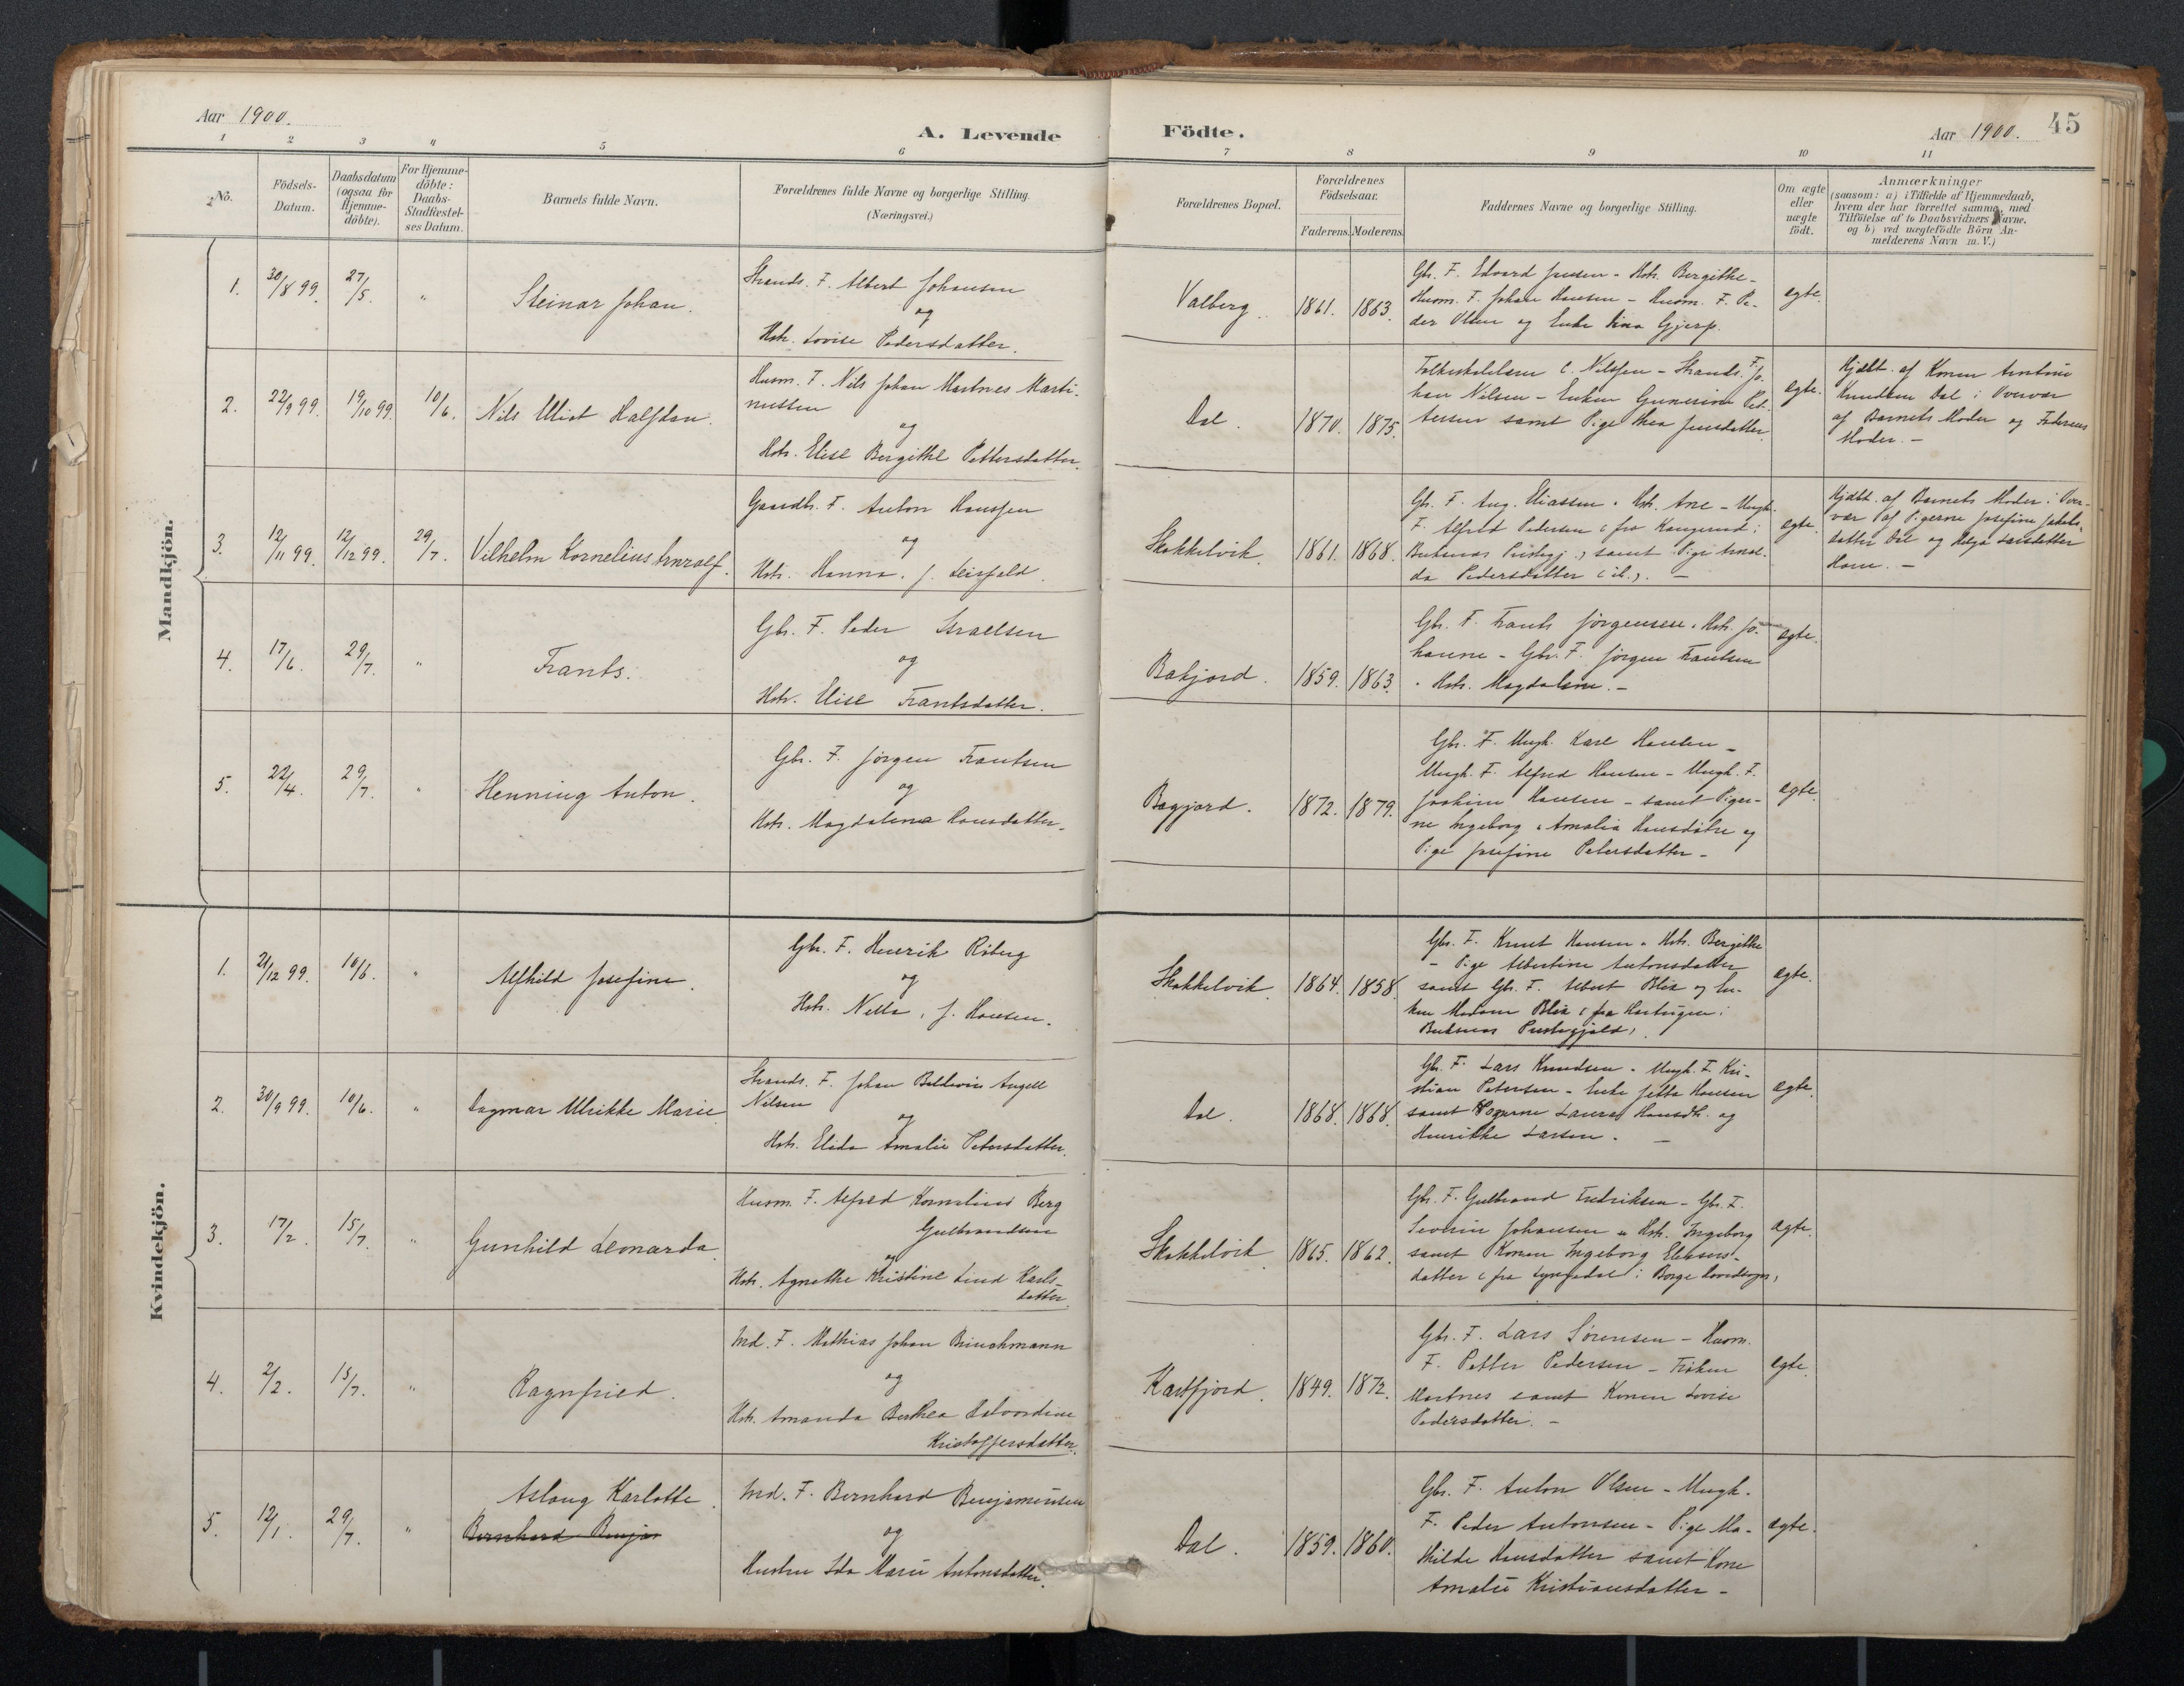 Aar 1900.
A. Levende
Födte.
Aar 1900.
45
1 2 3 4 5 6 7 8 9 10 11
No.
Födsels-
Datum.
Daabsdatum
(ogsaa for
Hjemme-
döbte).
For Hjemme-
döbte:
Daabs-
Stadfæstel-
ses Datum.
Barnets fulde Navn.
Forældrenes fulde Navne og borgerlige Stilling.
(Næringsvei.)
Forældrenes Bopæl.
Forældrenes
Födselsaar.
Faderens. Moderens.
Faddernes Navne og borgerlige Stilling.
Om ægte
eller
uægte
födt.
Anmærkninger
(saasom: a) i Tilfælde af Hjemmedaab,
hvem der har forrettet samme, med
Tilföielse af to Daabsvidners Navne.
og b) ved uægtefödte Börn An-
melderens Navn m. V.)
Mandkjön.
1.
30/8 99.
27/5.
"
Steinar Johan.
Strands. F. Albert Johansen
og
Hstr. Lovise Pedersdatter.
Valberg.
1861. 1863.
Gbr. F. Edvard Jensen - Hstr. Bergithe -
Husm. F. Johan Hansen - Husm. F. Pe-
der Olsen og Enke Lina Gjerp.
ægte.
2.
22/9 99.
19/10 99.
10/6.
Nils Uliot Halfdan.
Husm. F. Nils Johan Martnes Marti-
nussen
og
Hstr. Elise Bergithe Pettersdatter.
Dal.
1870. 1875.
Folkeskolelærer C. Nilssen - Strands. F. Jo-
han Nilsen - Enken Gunerine Pet-
tersen samt Pige Thea Jensdatter.
ægte.
Hjdbt. af Konen Arntine
Knudsen Dal i Overvær
af Barnets Moder og Faderens
Moder. -
3.
12/11 99.
12/12 99.
29/7.
Vilhelm Kornelius Arnralf.
Gaardbr. F. Anton Hanssen
og
Hstr. Hanna. f. Leirfald.
Skokkelvik.
1861. 1868.
Gbr. F. Aug. Eliassen. Hstr. Ane - Ungk.
F. Alfred Pedersen (fra Kangerud i
Buksnes Prestegj.) samt Pige Amal-
da Pedersdatter (ib.). -
ægte.
Hjdbt. af Barnets Moder i Over-
vær af Pigerne Josefine Jakobs-
datter Dal og Helga Larsdatter
Horn. -
4.
17/6.
29/7.
"
Frants.
Gbr. F. Peder Israelsen
og
Hstr. Elise Frantsdatter.
Bakjord.
1859. 1863.
Gbr. F. Frants Jörgensen. Hstr. Jo-
hanne - Gbr. F. Jörgen Frantsen
. Hstr. Magdalene. -
ægte.
5.
22/4.
29/7.
"
Henning Anton.
Gbr. F. Jörgen Frantsen
og
Hstr. Magdalena Hansdatter.
Bagjord.
1872. 1879.
Gbr. F. Ungk. Karl Hansen -
Ungk. F. Alfred Hansen - Ungk. F.
Joakim Hansen - samt Piger-
ne Ingeborg & Amalia Hansdötre og
Pige Josefine Petersdatter -
ægte.
Kvindekjön.
1.
21/12 99.
10/6.
"
Alfhild Josefine.
Gbr. F. Henrik Röberg
og
Hstr. Nella, f. Hansen.
Skokkelvik.
1864. 1858.
Gbr. F. Knut Hansen. Hstr. Bergithe
- Pige Albertine Antonsdatter
samt Gbr. F. Albert Blix og En-
ken Madam Blix (fra Hartvigen i
Buksnes Prestegjæld).
ægte.
2.
30/9 99.
10/6.
"
Dagmar Ulrikke Marie
Strands. F. Johan Baldevin Angell
Nilsen
og
Hstr. Elida Amalie Petersdatter.
Dal.
1868. 1868.
Gbr. F. Lars Knudsen. Ungk. F. Kri-
stian Petersen - Enke Jetta Hansen
samt Pigerne Laura Hansdtr. og
Henrikke Larsen. -
ægte.
3.
17/2.
15/7.
"
Gunhild Leonarda.
Husm. F. Alfred Kornelius Berg
Gulbrandsen
og
Hstr. Agnethe Kristine Lind Karls-
datter.
Skokkelvik.
1865. 1862.
Gbr. F. Gulbrand Fredriksen - Gbr. F.
Severin Johansen & Hstr. Ingeborg
samt Konen Ingeborg Eleasers-
datter (fra Lyngedal i Borge Hovedsogn)
ægte.
4.
2/2.
15/7.
"
Ragnfried.
Ind. F. Mathias Johan Brinchmann
og
Hstr. Amanda Berthea Edvardine
Kristoffersdatter.
Kartfjord.
1849. 1872.
Gbr. F. Lars Sörensen - Husm.
F. Petter Pedersen - Fröken
Martnes samt Konen Lovise
Pedersdatter. -
ægte.
5.
12/1.
29/7.
"
Aslaug Karlotte.
Bernhard Benja
Ind. F. Bernhard Benjaminsen
og
Hustru Ida Marie Antonsdatter.
Dal.
1859. 1860.
Gbr. F. Anton Olsen - Ungk.
F. Peder Antonsen - Pige Ma-
thilde Hansdatter samt Kone
Amalie Kristiansdatter -
ægte.